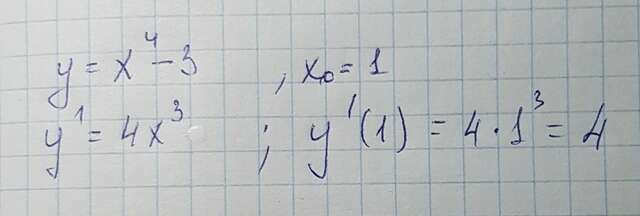 y = x⁴ - 3 , x₀ = 1
y' = 4x³ ; y'(1) = 4 · 1³ = 4